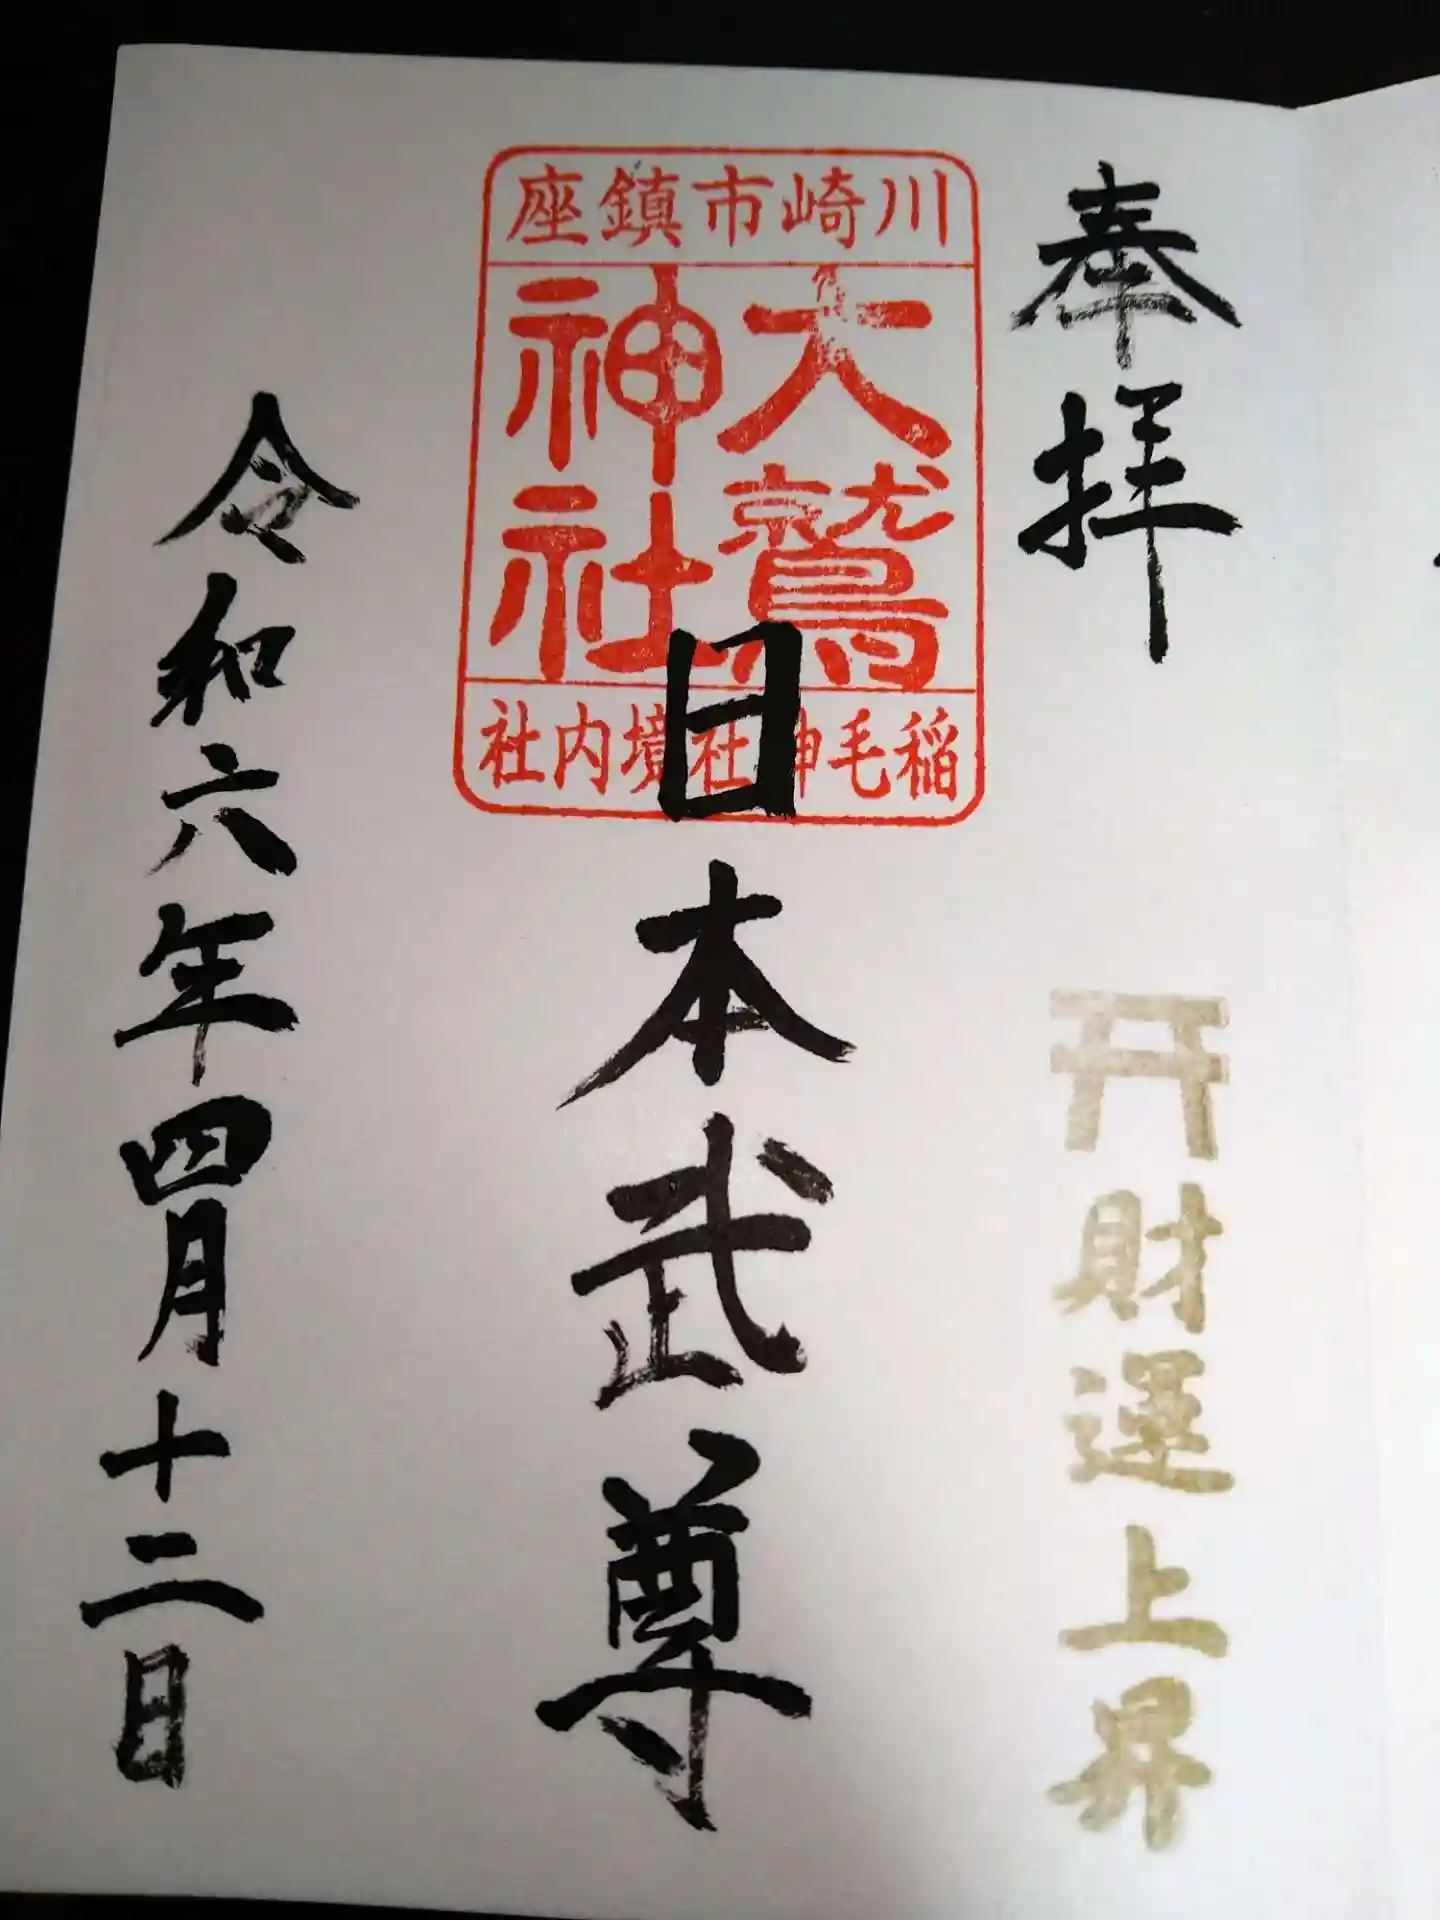 奉拝
财運上昇
川崎市鎮座
大鷲
神社
稲毛神社境内社
日本武尊
令和六年四月十二日